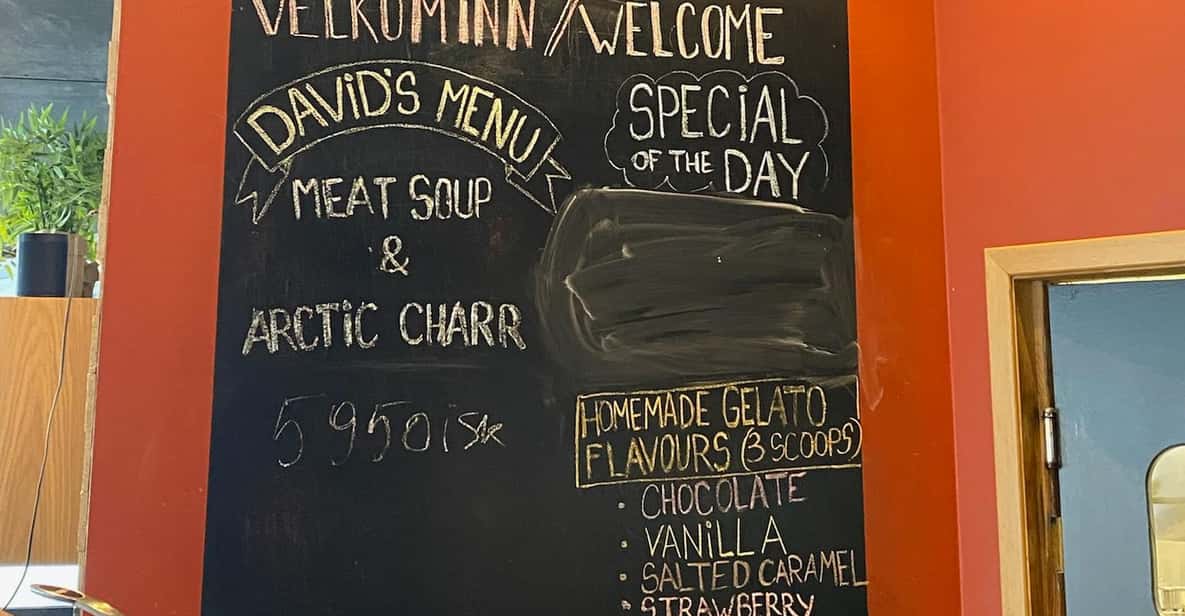 VELKOMINN / WELCOME
DAViD'S MENU
MEAT SOUP
&
ARCTiC CHARR
5950 isk
SPECiAL
OF THE DAY
HOMEMADE GELATO
FLAVOURS (3 SCOOPS)
• CHOCOLATE
• VANiLLA
• SALTED CARAMEL
• STRAWBERRY